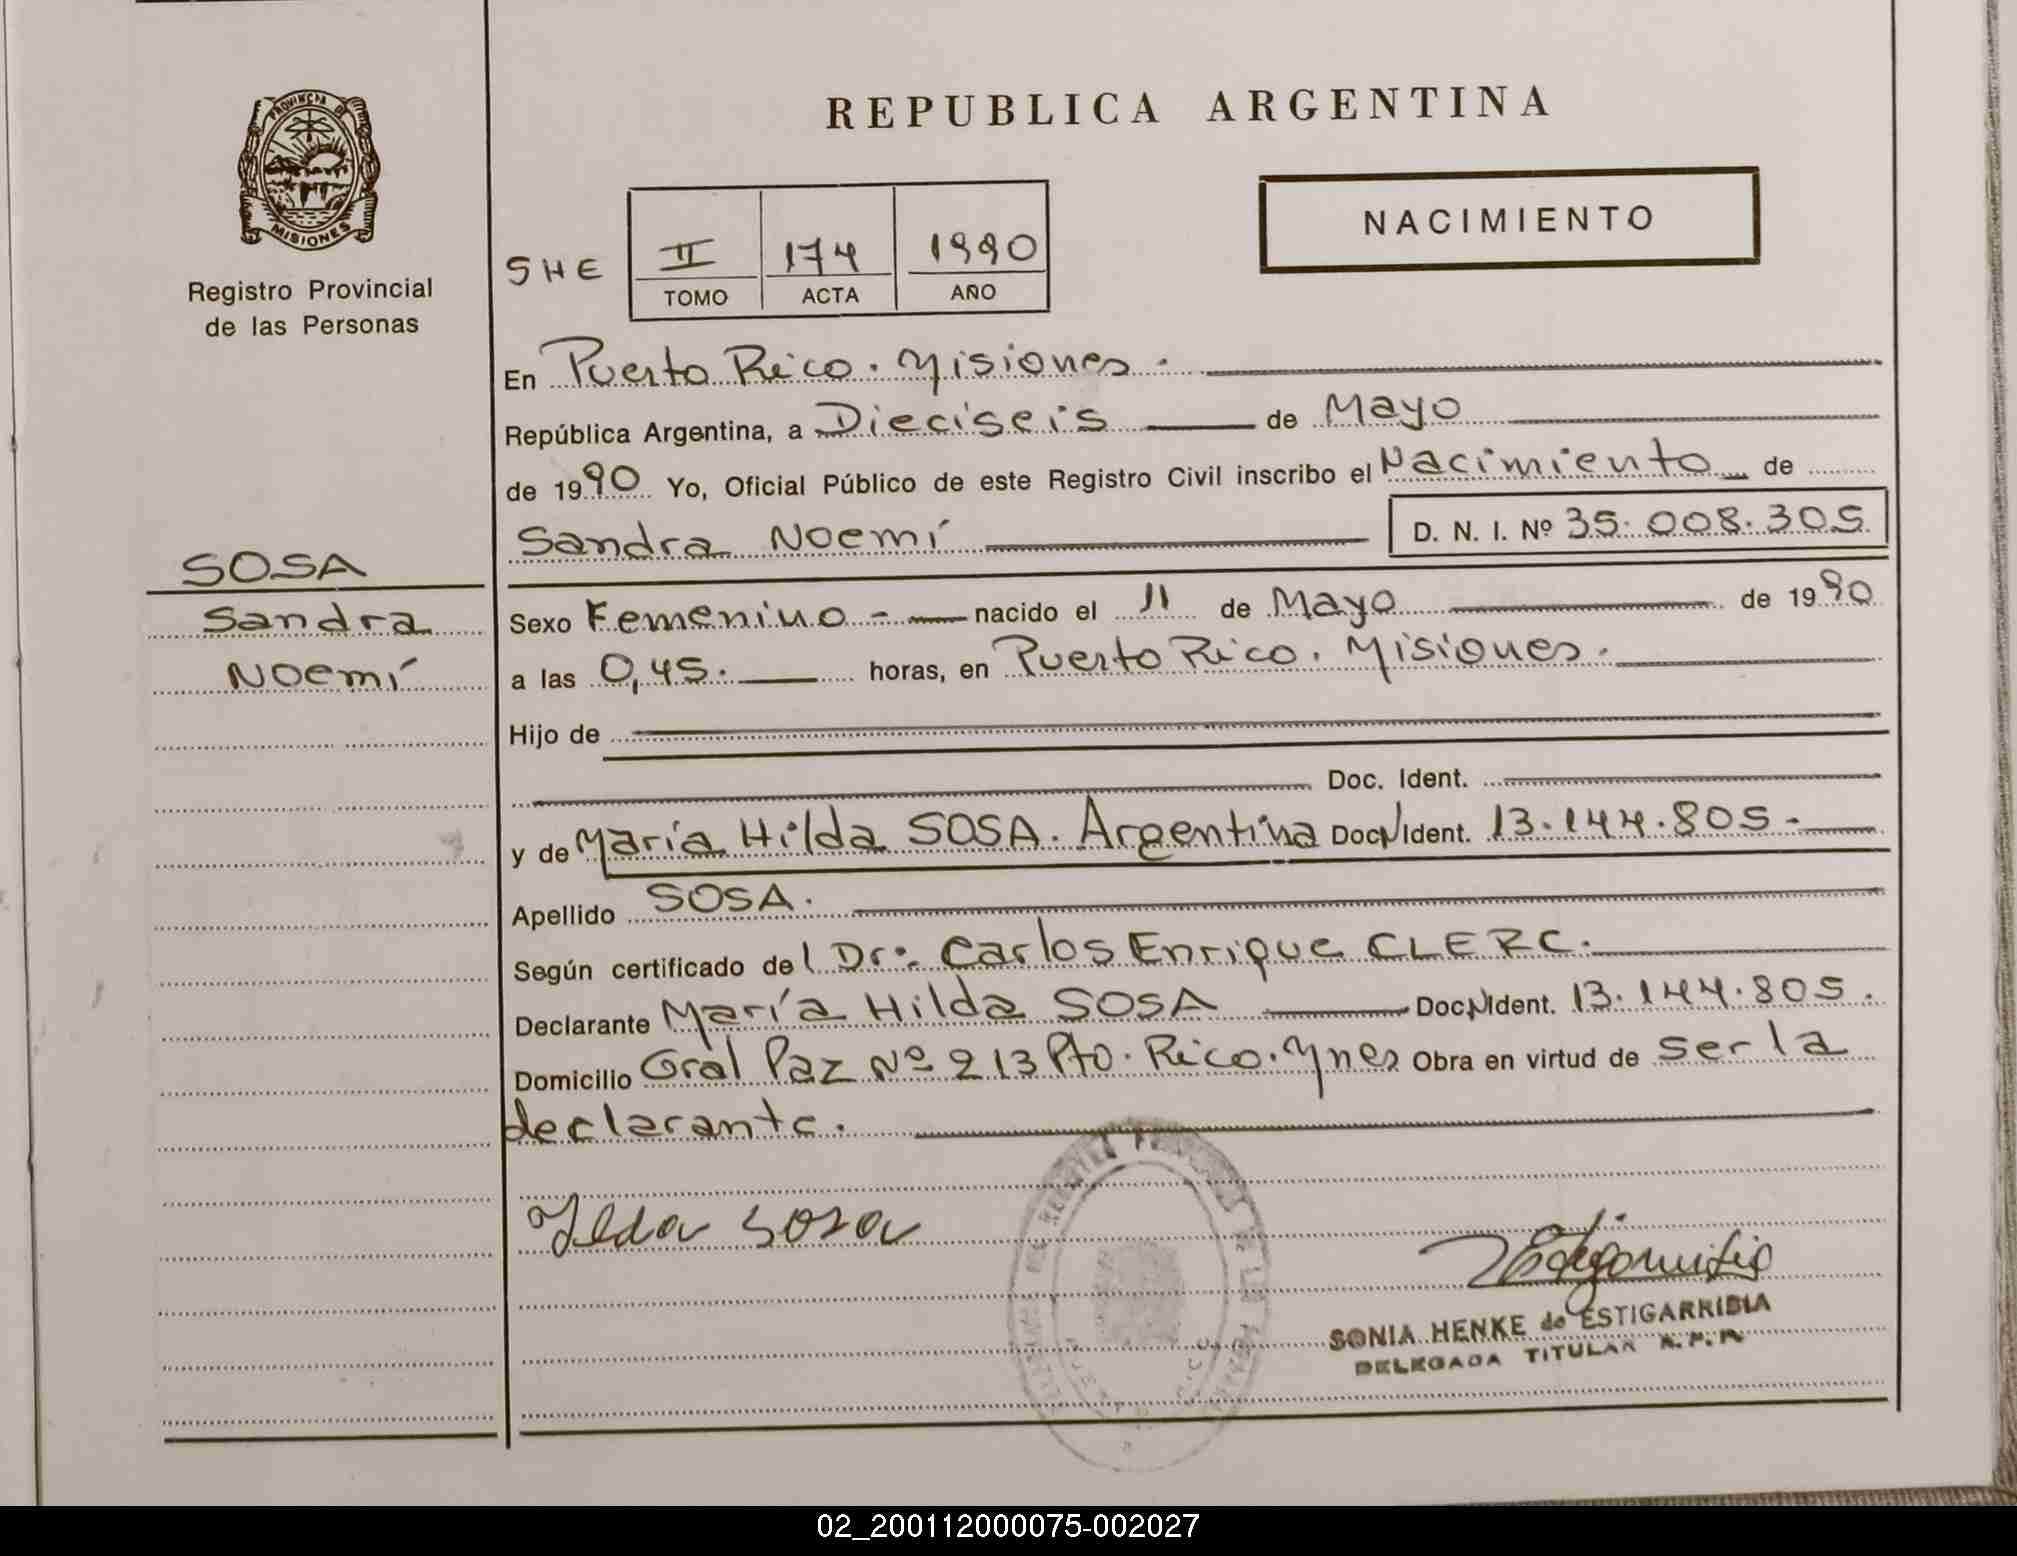 PROVINCIA DE
MISIONES
Registro Provincial
de las Personas
REPUBLICA ARGENTINA
NACIMIENTO
SHE
II 174 1990
TOMO ACTA AÑO
En Puerto Rico. Misiones.
República Argentina, a Dieciseis de Mayo
de 1990 Yo, Oficial Público de este Registro Civil inscribo el Nacimiento de
Sandra Noemí D. N. I. Nº 35.008.305
SOSA
Sandra
Noemí
Sexo Femenino - nacido el 11 de Mayo de 1990
a las 0,45. horas, en Puerto Rico. Misiones.
Hijo de
Doc. Ident.
y de María Hilda SOSA. Argentina Doc. Ident. 13.144.805.-
Apellido SOSA.
Según certificado del Dr. Carlos Enrique CLERC.
Declarante María Hilda SOSA Doc. Ident. 13.144.805.
Domicilio Gral Paz Nº 213 Pto. Rico. Mnes Obra en virtud de ser la
declarante.
Ilda Sosa
SONIA HENKE de ESTIGARRIBIA
DELEGADA TITULAR R.P.P.
02_200112000075-002027